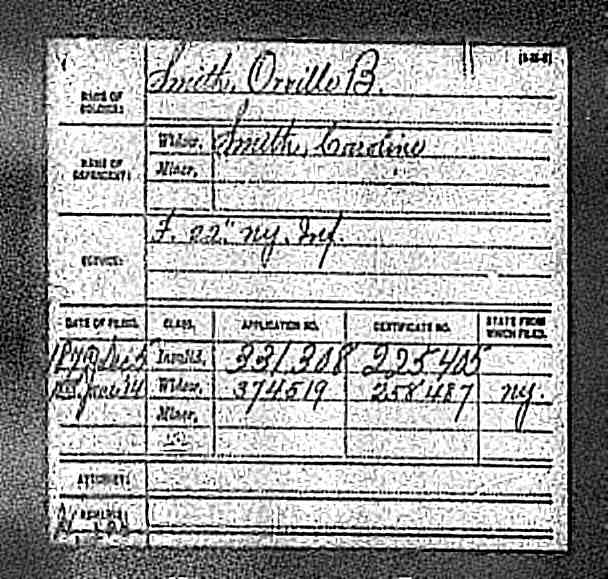 NAME OF SOLDIER: Smith, Orville B.
NAME OF DEPENDENT: Widow, Smith, Caroline
Minor,
SERVICE: F. 22" N.Y. Inf.
DATE OF FILING. CLASS. APPLICATION NO. CERTIFICATE NO. STATE FROM WHICH FILED.
Invalid, 331308 225405
Widow, 374519 258487 N.Y.
Minor,
ATTORNEY:
REMARKS: